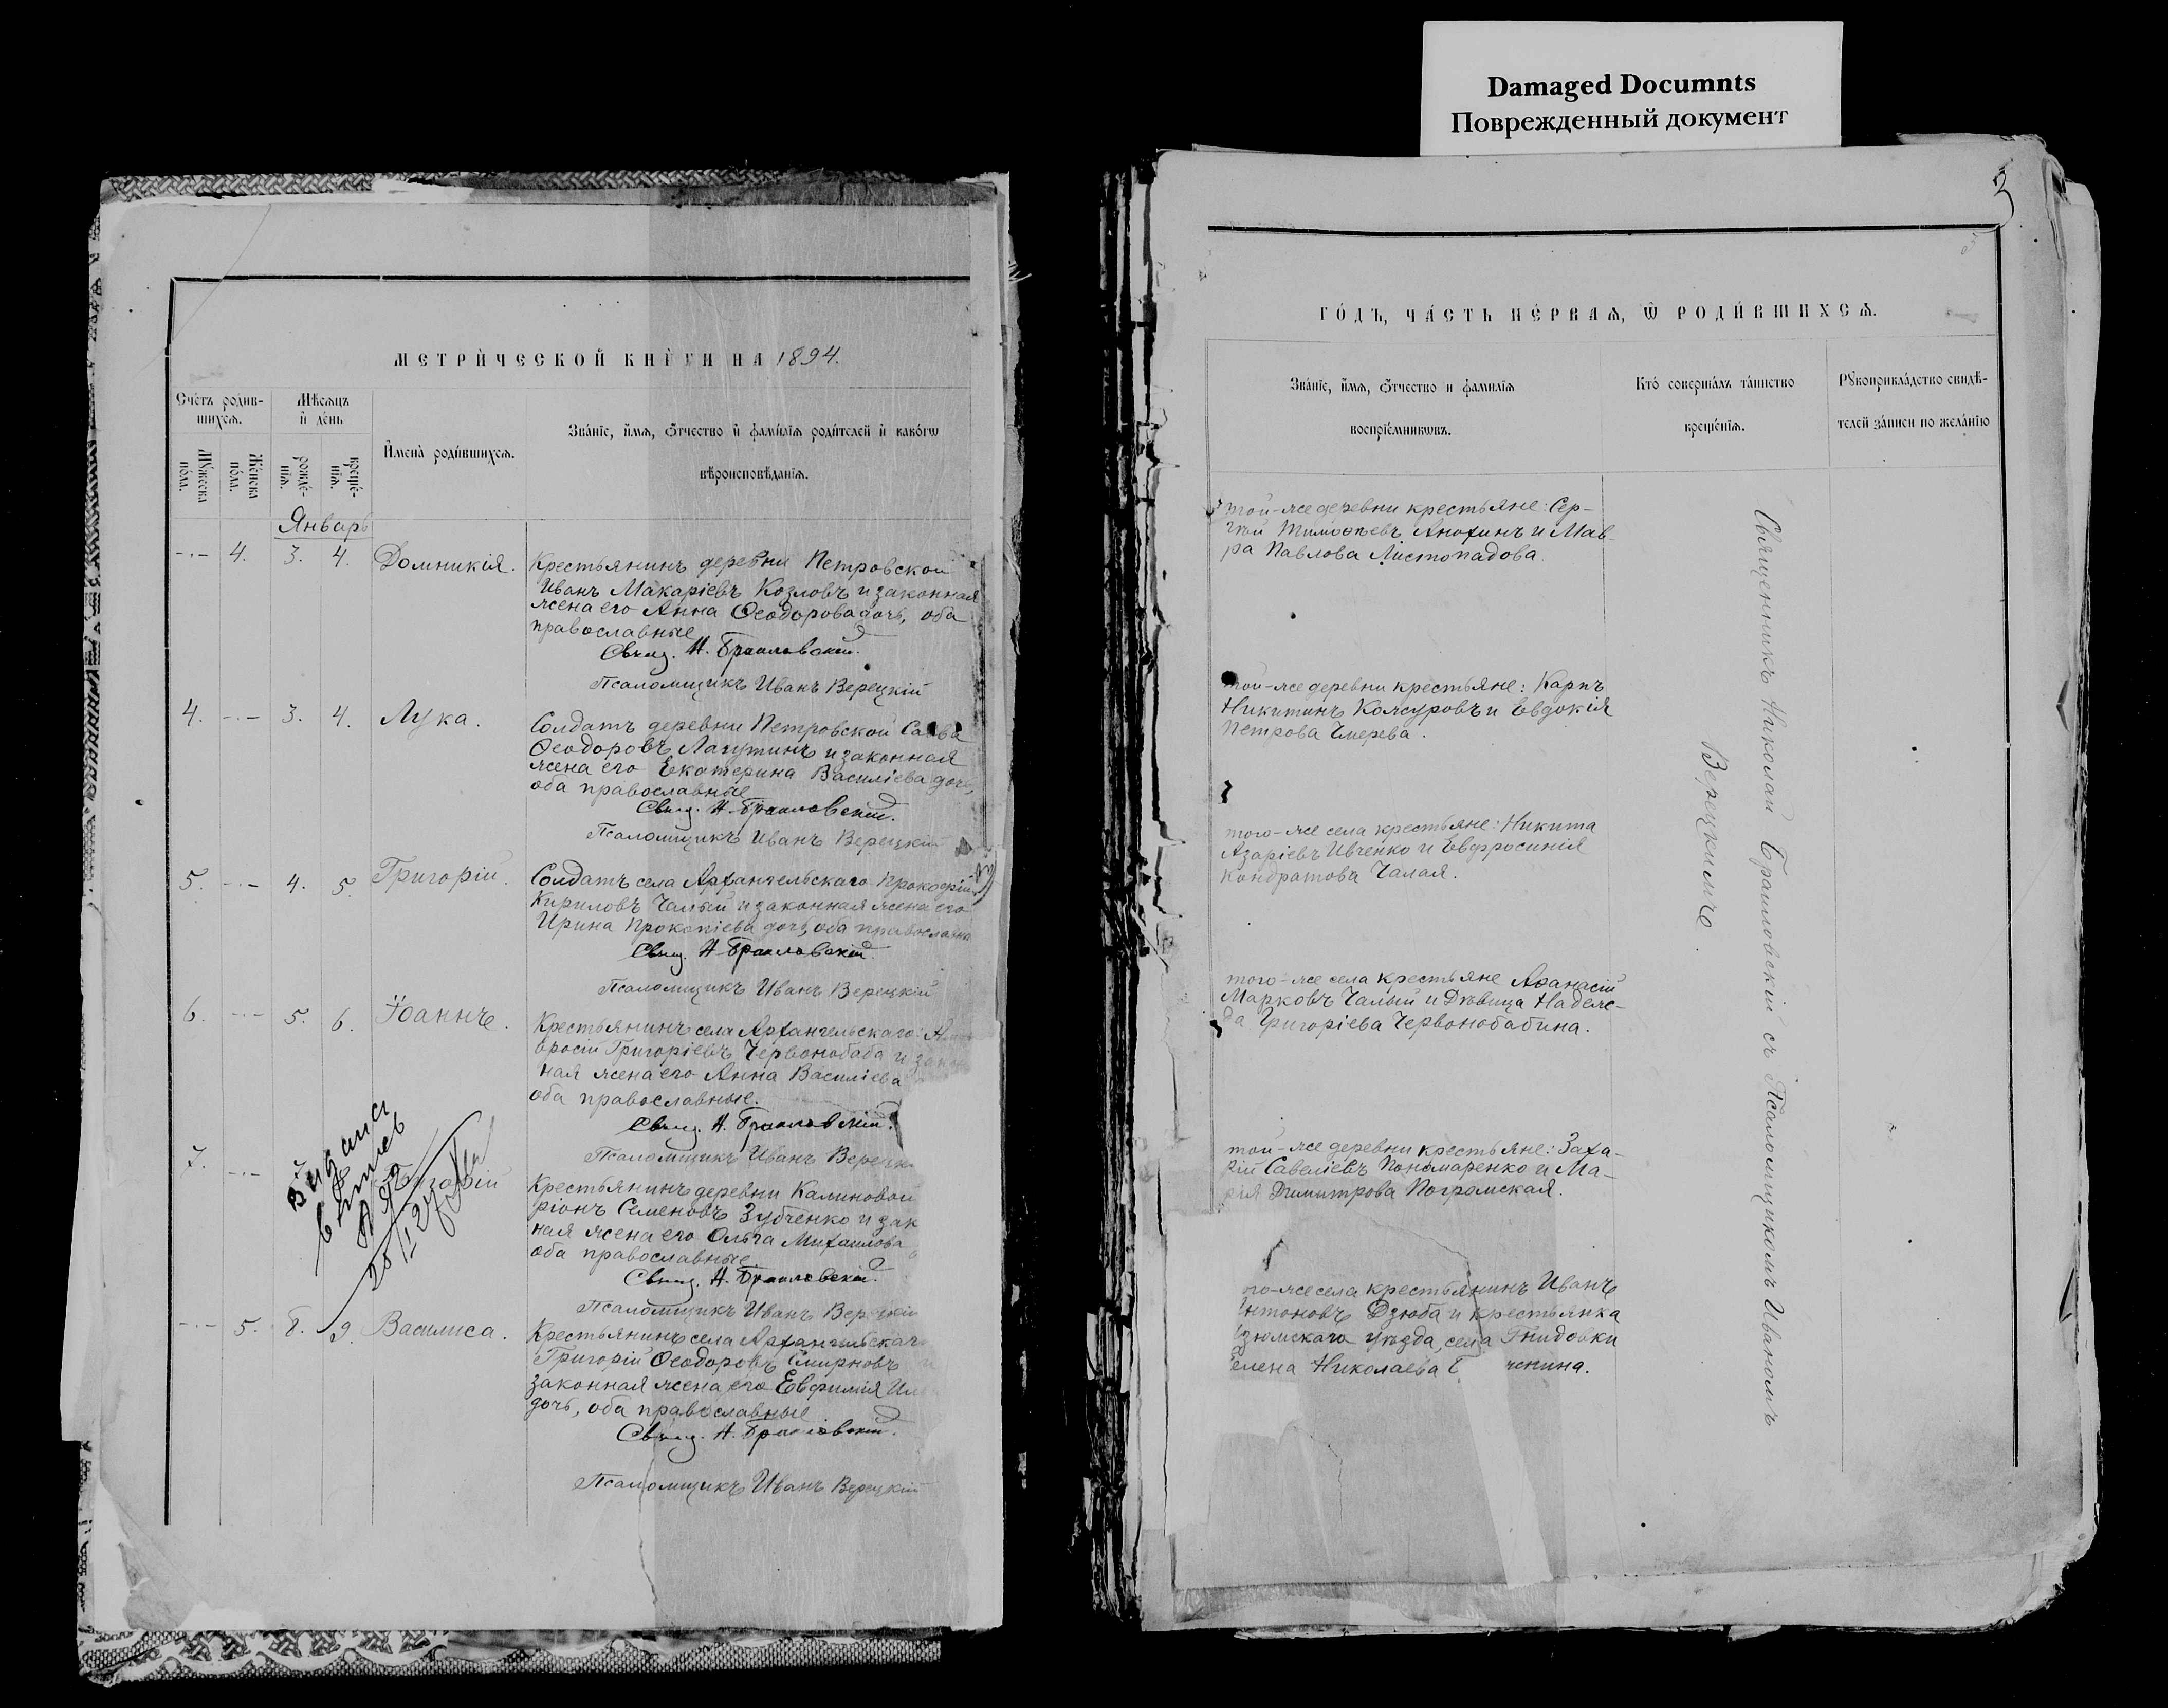 Damaged Documnts
Поврежденный документ
МЕТРИЧЕСКОЙ КНИГИ НА 1894.
Счетъ родив-
шихся.
Мѣсяцъ
и день
Мужеска
пола.
Женска
пола.
рожде-
нія.
креще-
нія.
Имена родившихся.
Званіе, имя, отчество и фамилія родителей и какого
вѣроисповѣданія.
Январь
4. 3. 4. Домникія.
Крестьянинъ деревни Петровской
Иванъ Макаріевъ Козловъ и законная
жена его Анна Ѳеодорова дочь, оба
православные
Свящ. Н. Браиловскій.
Псаломщикъ Иванъ Верецкій
4. 3. 4. Лука.
Солдатъ деревни Петровской Савва
Ѳеодоровъ Лагутинъ и законная
жена его Екатерина Василіева дочь,
оба православные
Свящ. Н. Браиловскій.
Псаломщикъ Иванъ Верецкій
5. 4. 5. Григорій.
Солдатъ села Архангельскаго Прокофій
Кириловъ Чалый и законная жена его
Ирина Прокопіева дочь, оба православные
Свящ. Н. Браиловскій.
Псаломщикъ Иванъ Верецкій
6. 5. 6. Іоаннъ.
Крестьянинъ села Архангельскаго: Ам
вросій Григоріевъ Червонобаба и закон
ная жена его Анна Василіева
оба православные.
Свящ. Н. Браиловскій.
Псаломщикъ Иванъ Верецк
7.
Крестьянинъ деревни Калиновой
ріонъ Семеновъ Зубченко и зак
ная жена его Ольга Михаилова
оба православные
Свящ. Н. Браиловскій.
Псаломщикъ Иванъ Верецкій
5. 8. 9. Василиса.
Крестьянинъ села Архангельскаг
Григорій Ѳеодоровъ Смирновъ и
законная жена его Евфимія Ил
дочь, оба православные
Свящ. Н. Браиловскій.
Псаломщикъ Иванъ Верецкій
3
ГОДЪ, ЧАСТЬ ПЕРВАЯ, Ѡ РОДИВШИХСЯ.
Званіе, имя, отчество и фамилія
воспріемниковъ.
Кто совершалъ таинство
крещенія.
Рукоприкладство свидѣ-
телей записи по желанію
той-же деревни крестьяне: Сер-
гѣй Тимоѳеевъ Анохинъ и Мав-
ра Павлова Листопадова.
той-же деревни крестьяне: Карпъ
Никитинъ Кожуровъ и Евдокія
Петрова Чмерева.
того-же села крестьяне: Никита
Азаріевъ Ивченко и Евфросинія
Кондратова Чалая.
того-же села крестьяне Аѳанасій
Марковъ Чалый и Дѣвица Надеж-
да Григоріева Червонобабина.
той-же деревни крестьяне: Заха-
рій Савеліевъ Пономаренко и Ма-
рія Димитрова Погромская.
ого-же села крестьянинъ Иванъ
Антоновъ Дзюба и крестьянка
Изюмскаго уѣзда, села Гнидовки
Елена Николаева
Священникъ Николай Браиловскій съ Псаломщикомъ Иваномъ
Верецкимъ.